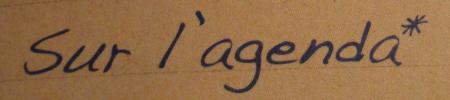 Sur l'agenda*